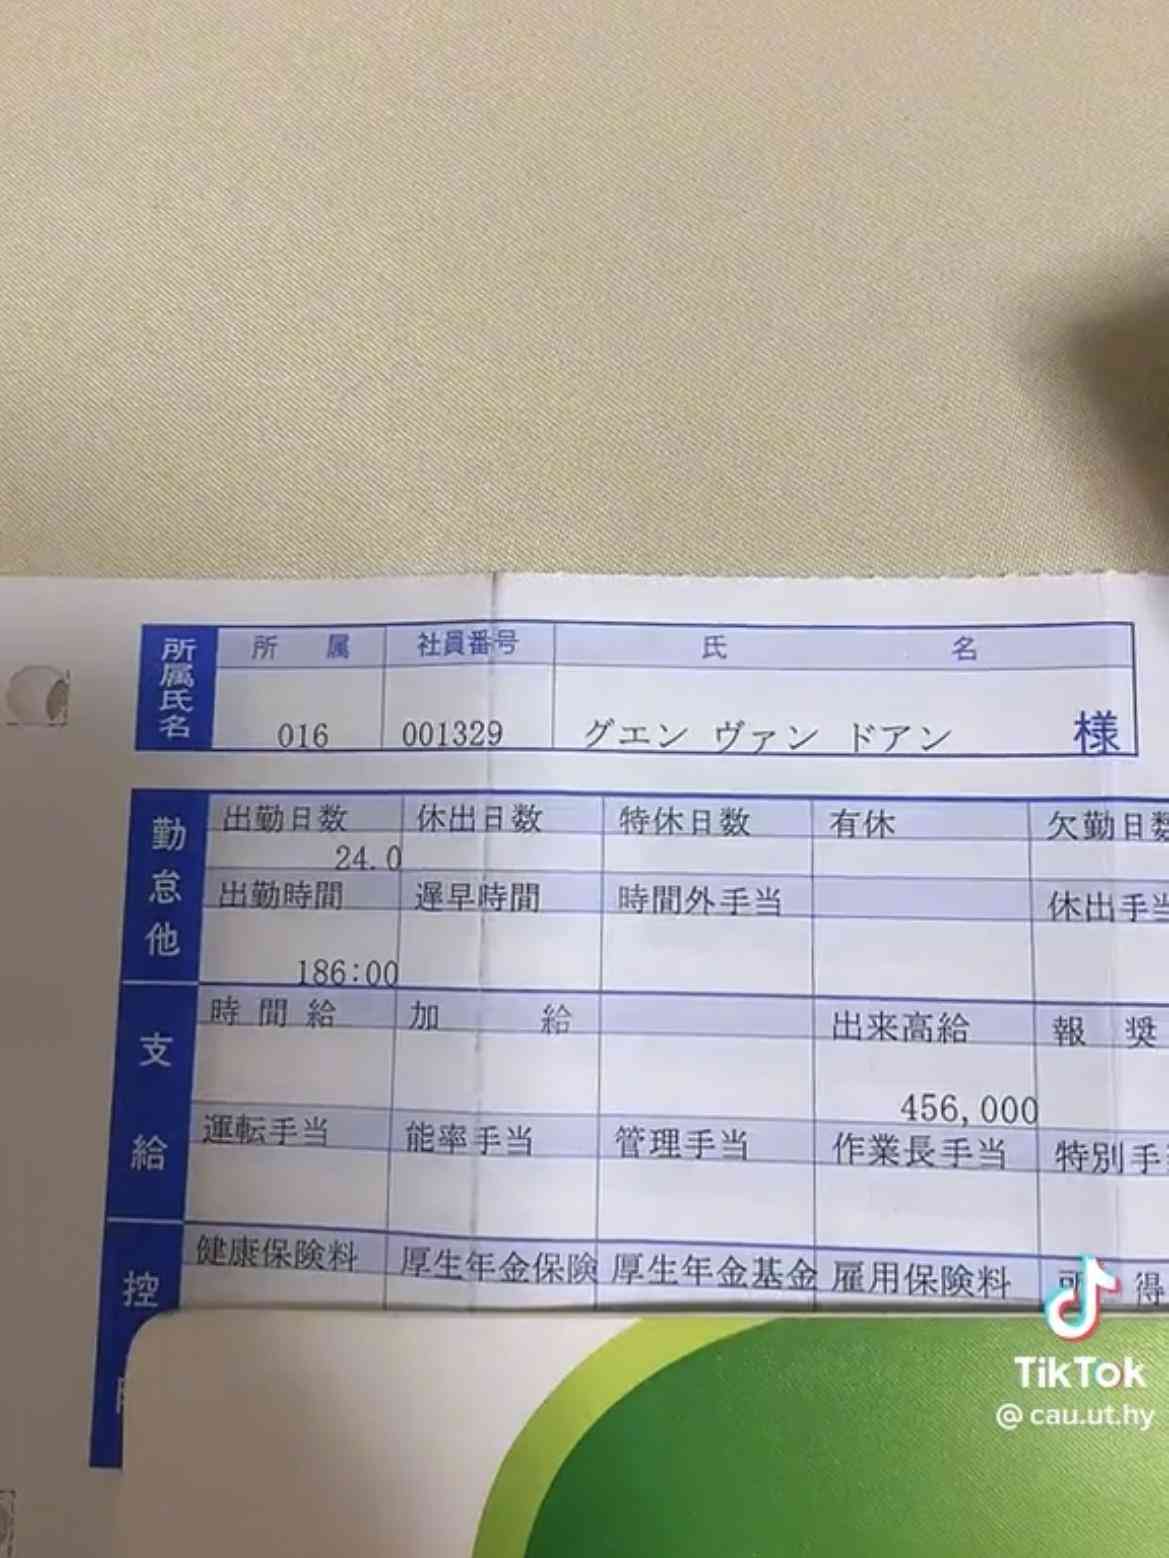 所属氏名
所 属 社員番号 氏 名
016 001329 グエン ヴァン ドアン 様
勤怠他
出勤日数 休出日数 特休日数 有休 欠勤日数
24.0
出勤時間 遅早時間 時間外手当 休出手当
186:00
支給
時間給 加 給 出来高給 報 奨
456,000
運転手当 能率手当 管理手当 作業長手当 特別手
控
健康保険料 厚生年金保険 厚生年金基金 雇用保険料 所 得
TikTok
@cau.ut.hy